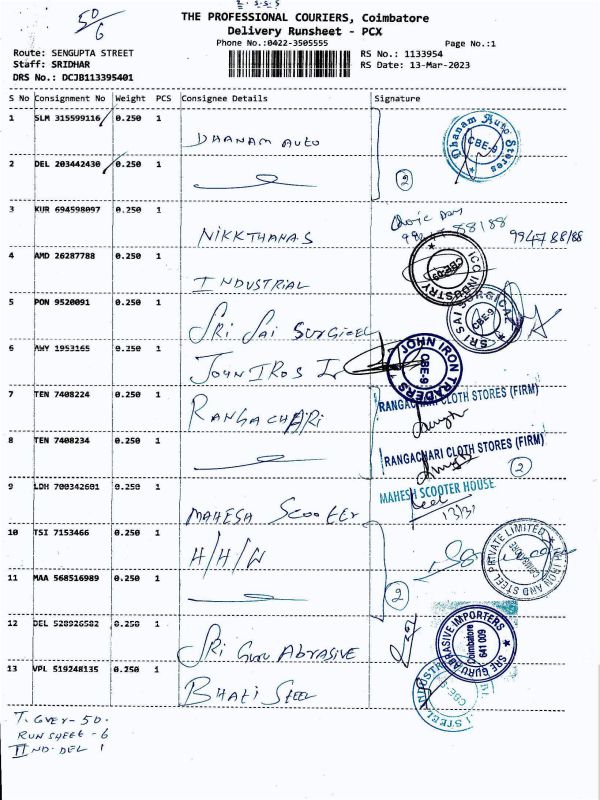 50/6
THE PROFESSIONAL COURIERS, Coimbatore
Delivery Runsheet - PCX
Phone No.:0422-3505555 Page No.:1
Route: SENGUPTA STREET RS No.: 1133954
Staff: SRIDHAR RS Date: 13-Mar-2023
DRS No.: DCJB113395401
S No Consignment No Weight PCS Consignee Details Signature
1 SLM 315599116 0.250 1 DHANAM AUTO Dhanam Auto Stores CBE-9
2 DEL 203442430 0.250 1 2
3 KUR 694598097 0.250 1 NIKKTHANAS 88188 994788/88
4 AMD 26287788 0.250 1 INDUSTRIAL ICC INDUSTRY CBE-09
5 PON 9520091 0.250 1 SRI SAI SURGICEL SRI SAI SURGICAL CBE-9
6 AWY 1953165 0.250 1 JOHN IROS JOHN IRON TRADERS CBE-9
7 TEN 7408224 0.250 1 RANGACHARI RANGACHARI CLOTH STORES (FIRM)
8 TEN 7408234 0.250 1 RANGACHARI CLOTH STORES (FIRM) 2
9 LDH 700342601 0.250 1 MAHESH SCOOTER MAHESH SCOOTER HOUSE
13/3
10 TSI 7153466 0.250 1 H/H/W IRON AND STEEL PRIVATE LIMITED COIMBATORE
11 MAA 568516989 0.250 1 2
12 DEL 528926582 0.250 1 SRI GURU ABRASIVE SRE GURU ABRASIVE IMPORTERS Coimbatore 641 009
13 VPL 519248135 0.250 1 BHATI STEEL STEEL INDUSTR CBE-9
T. GVER - 50.
RUN SHEET - 6
II ND. DEL 1